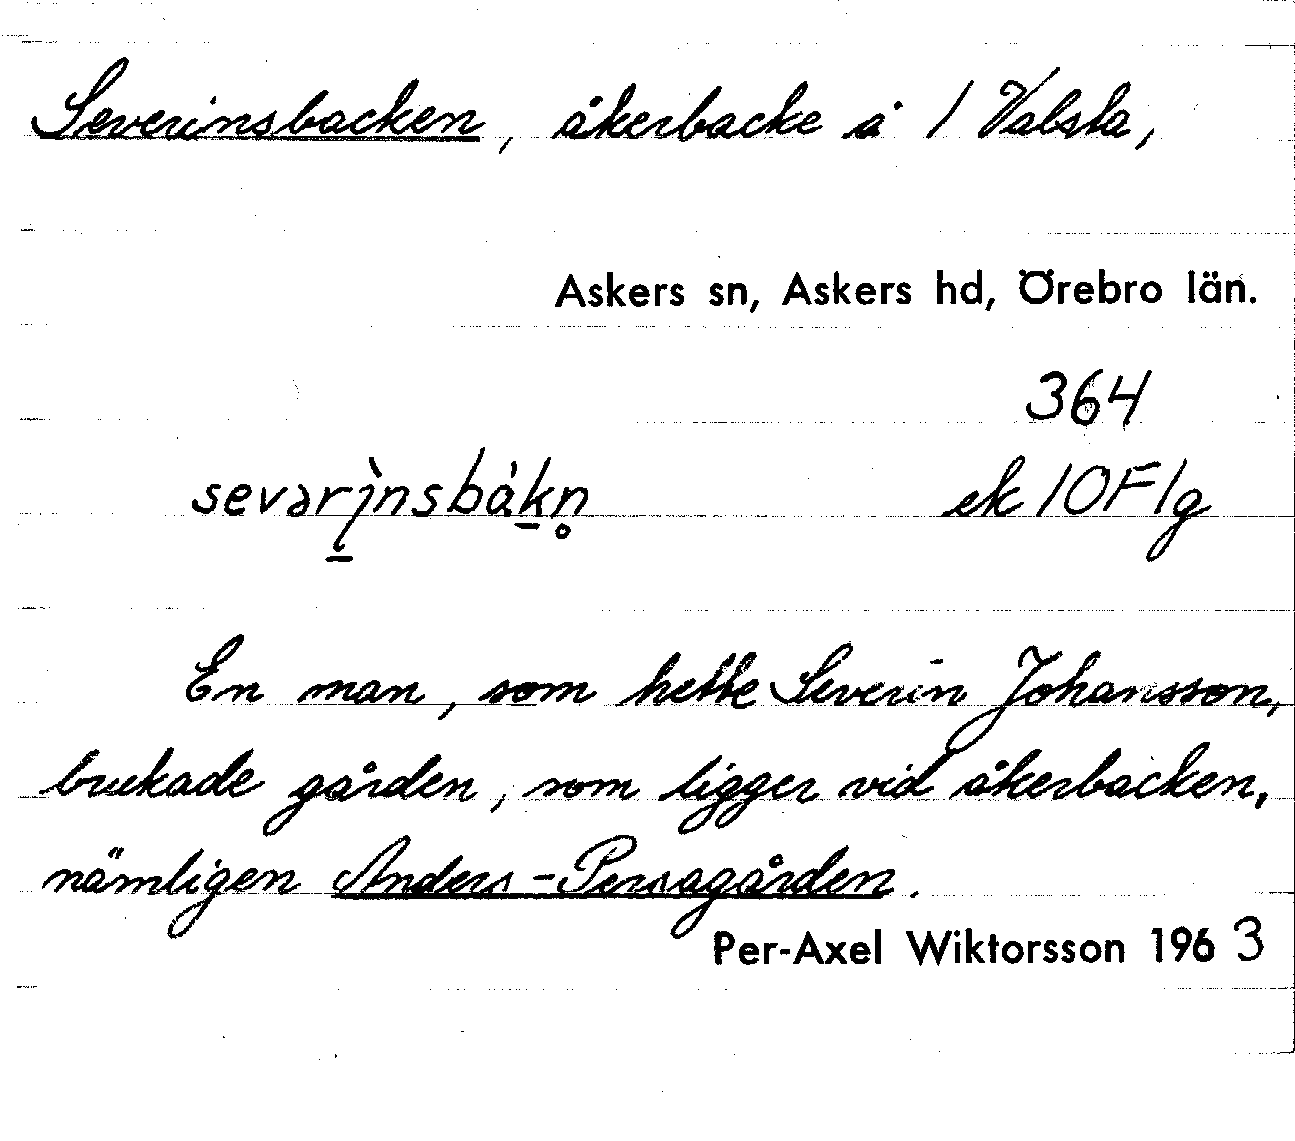 Severinsbacken, åkerbacke å 1 Valsta,
Askers sn, Askers hd, Örebro län.
364
sevərì̱nsbàk̠n̥ ek 10F1g
En man, som hette Severin Johansson,
brukade gården, som ligger vid åkerbacken,
nämligen Anders-Persagården.
Per-Axel Wiktorsson 1963